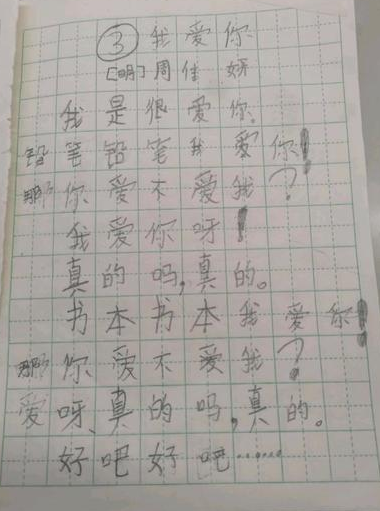 ③我爱你
[明]周佳妍
我是很爱你。
铅笔铅笔我爱你!
那你爱不爱我?
我爱你呀!
真的吗,真的。
书本书本我爱你!
那你爱不爱我?
爱呀、真的吗,真的。
好吧好吧……